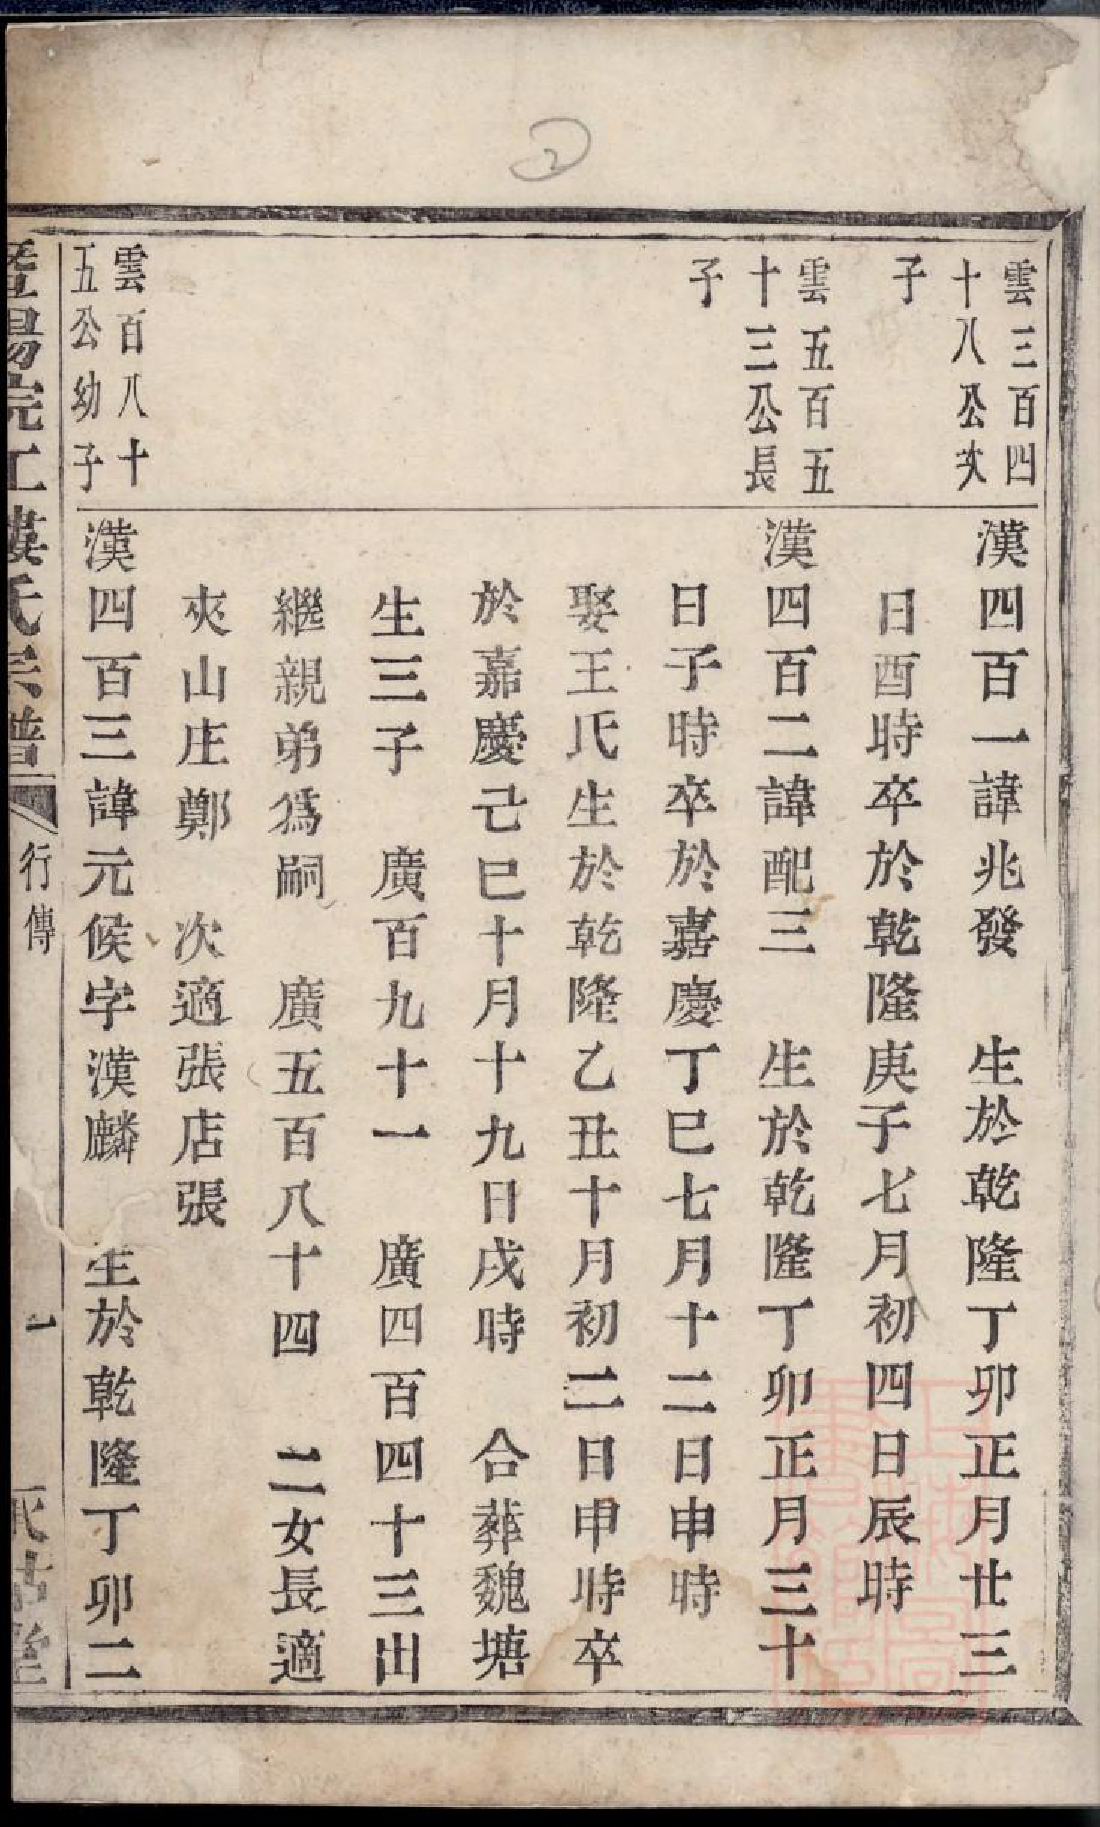 雲三百四
十八公次
子
漢四百一諱兆發　生於乾隆丁卯正月廿三
日酉時卒於乾隆庚子七月初四日辰時
雲五百五
十三公長
子
漢四百二諱配三　生於乾隆丁卯正月三十
日子時卒於嘉慶丁巳七月十二日申時
娶王氏生於乾隆乙丑十月初二日申時卒
於嘉慶己巳十月十九日戌時　合葬魏塘
生三子　廣百九十一　廣四百四十三出
繼親弟爲嗣　廣五百八十四　二女長適
夾山庄鄭　次適張店張
雲百八十
五公幼子
漢四百三諱元候字漢麟　生於乾隆丁卯二
暨陽院工婁氏宗譜
行傳
一
2